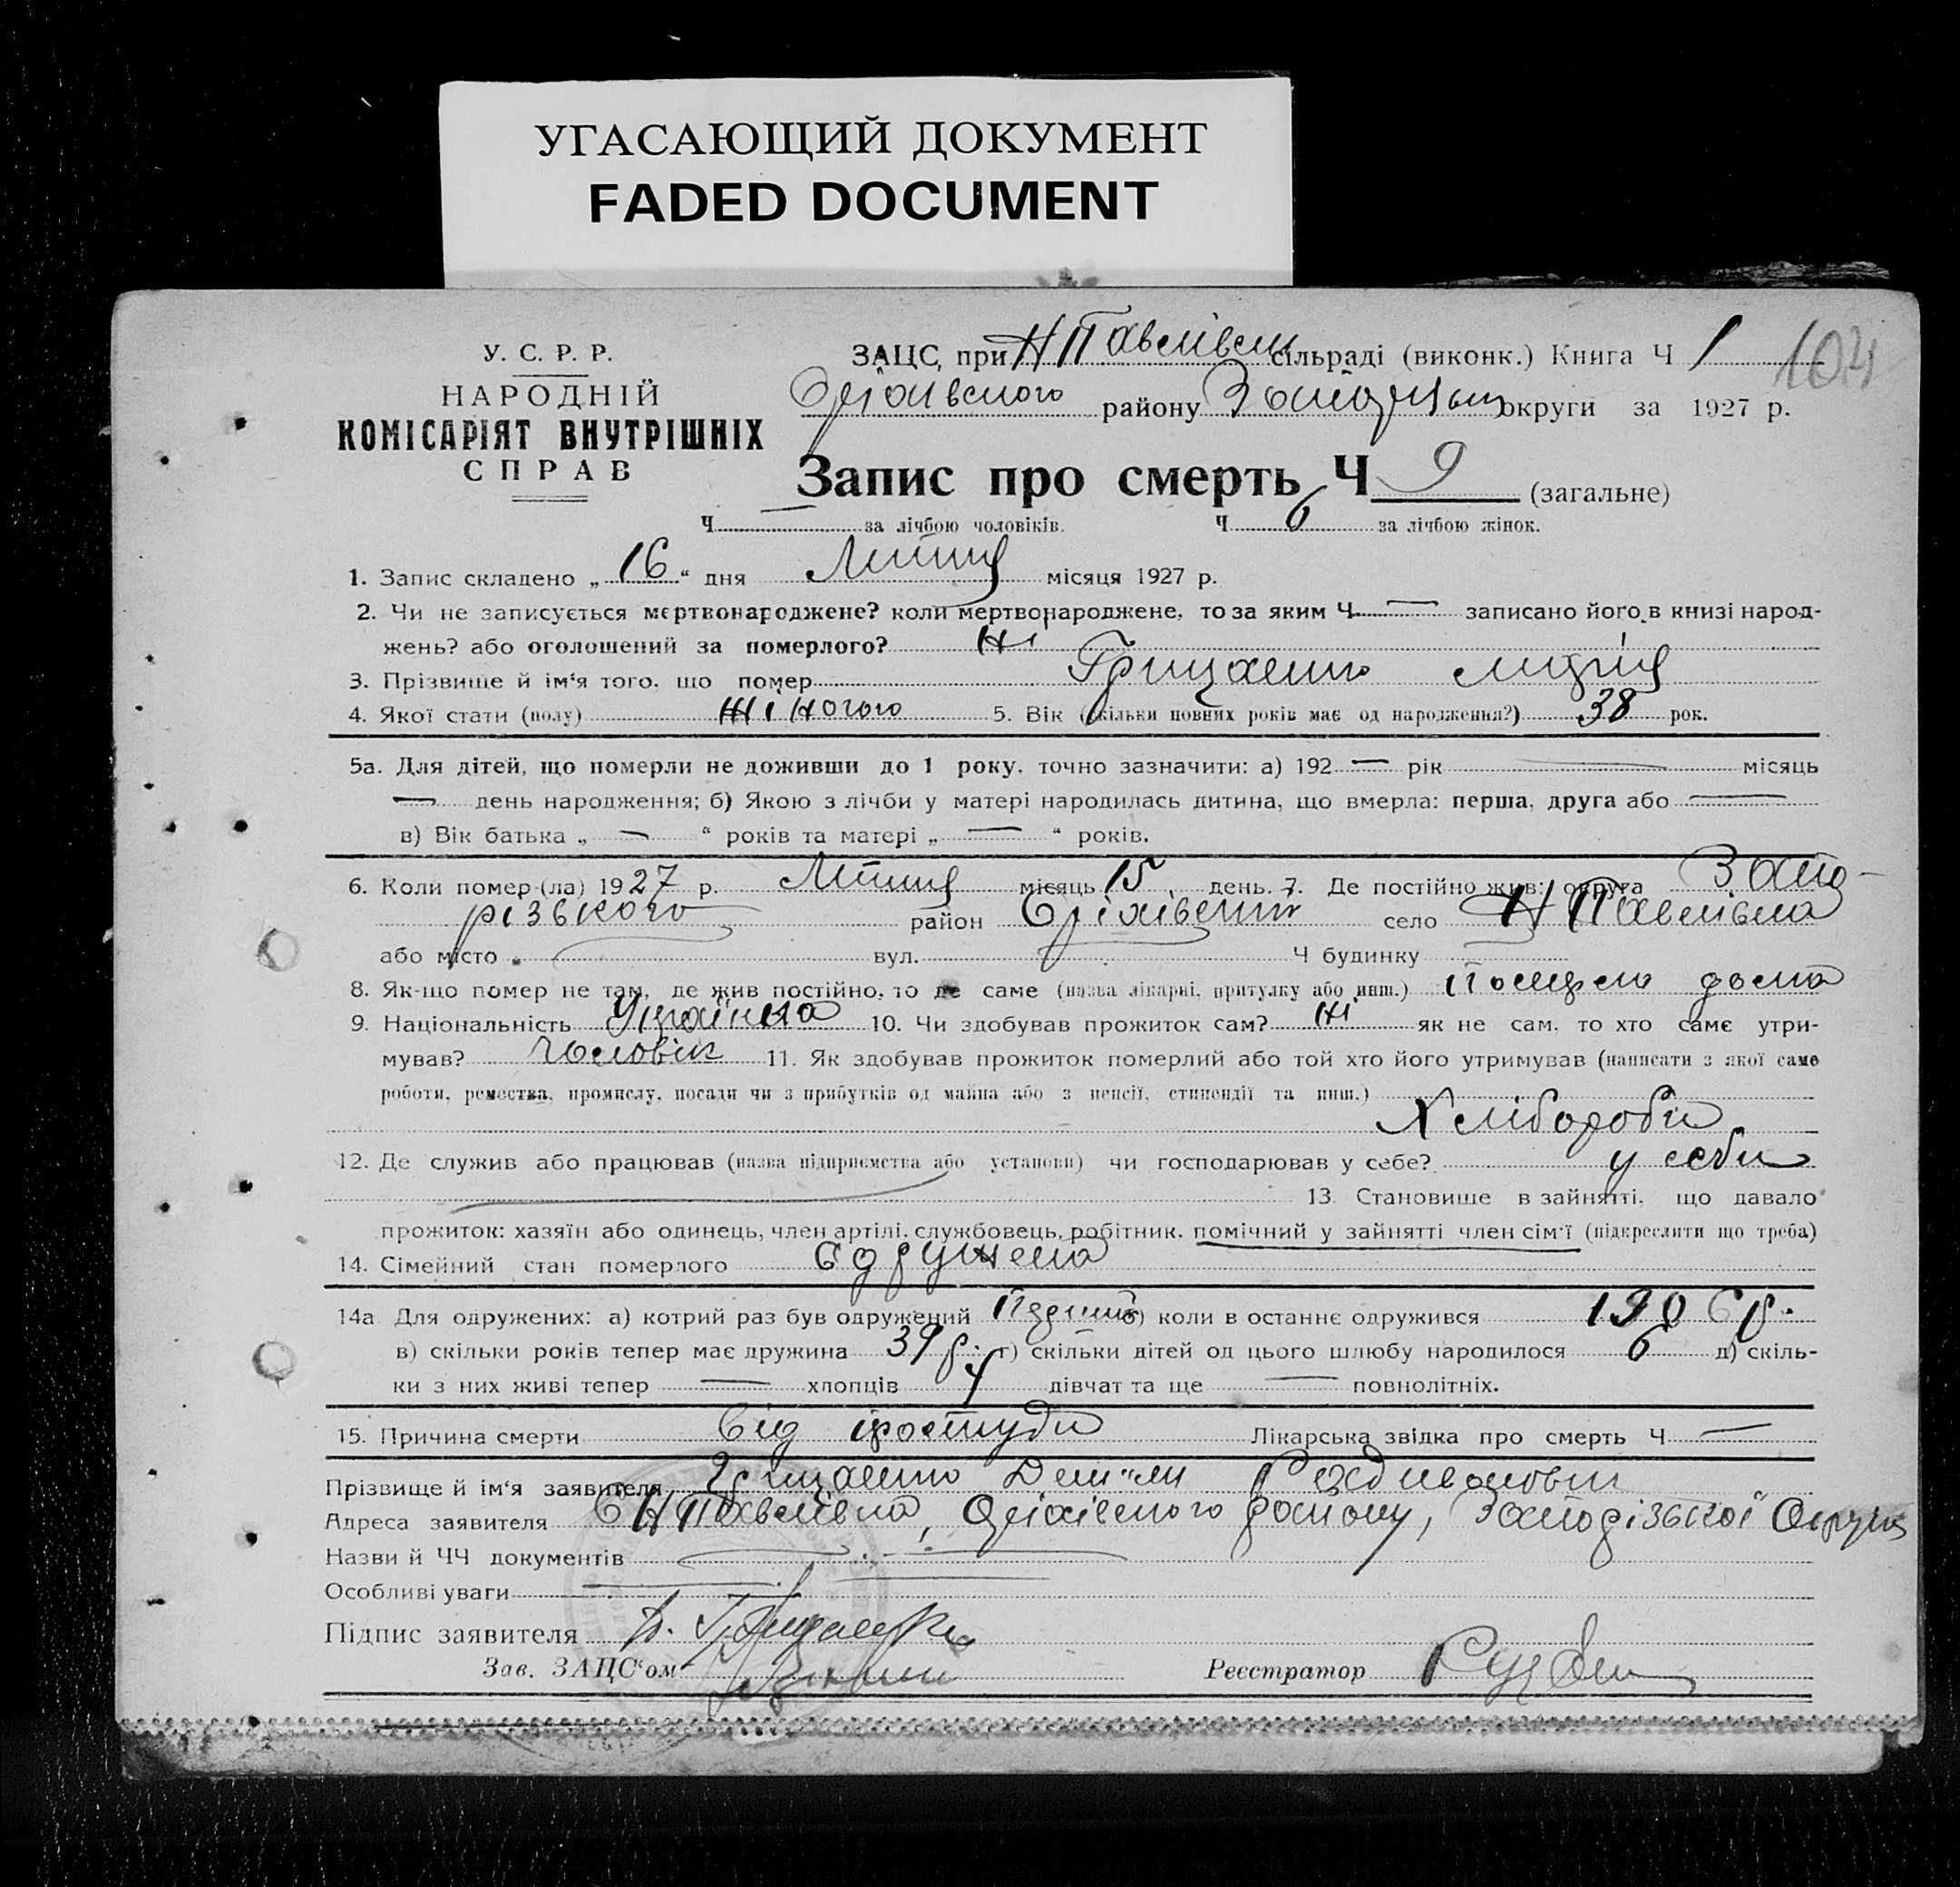 УГАСАЮЩИЙ ДОКУМЕНТ
FADED DOCUMENT
У. С. Р. Р.
НАРОДНІЙ
КОМІСАРІЯТ ВНУТРІШНІХ
СПРАВ
ЗАЦС при Н Павлівськ сільраді (виконк.) Книга Ч 1 104
Оріхівського району округи за 1927 р.
Запис про смерть Ч 9 (загальне)
Ч — за лічбою чоловіків. Ч 6 за лічбою жінок.
1. Запис складено „ 16 “ дня Липня місяця 1927 р.
2. Чи не записується мертвонароджене? коли мертвонароджене, то за яким Ч — записано його в книзі народ-
жень? або оголошений за померлого? Ні
3. Прізвище й ім'я того, що помер Грищенко Лидія
4. Якої стати (полу) Жіночого 5. Вік (скільки повних років має од народження?) 38 рок.
5а. Для дітей, що померли не доживши до 1 року, точно зазначити: а) 192 — рік — місяць
— день народження; б) Якою з лічби у матері народилась дитина, що вмерла: перша, друга або —
в) Вік батька „ — “ років та матері „ — “ років.
6. Коли помер (ла) 1927 р. Липня місяць 15 день. 7. Де постійно жив: округа Запо-
різького район Оріхівський село Н Павлівка
або місто вул. Ч будинку
8. Як-що помер не там, де жив постійно, то де саме (назва лікарні, притулку або инш.) дома
9. Національність Українка 10. Чи здобував прожиток сам? Ні як не сам, то хто саме утри-
мував? Чоловік 11. Як здобував прожиток померлий або той хто його утримував (написати з якої саме
роботи, ремества, промислу, посади чи з прибутків од майна або з пенсії, стипендії та инш.)
Хлібороби
12. Де служив або працював (назва підприємства або установи) чи господарював у себе? у себи
13. Становище в зайнятті, що давало
прожиток: хазяїн або одинець, член артілі, службовець, робітник, помічний у зайнятті член сім'ї (підкреслити що треба)
14. Сімейний стан померлого Одружена
14а Для одружених: а) котрий раз був одружений б) коли в останнє одружився 1906 р.
в) скільки років тепер має дружина 39 р. г) скільки дітей од цього шлюбу народилося 6 д) скіль-
ки з них живі тепер — хлопців 4 дівчат та ще — повнолітніх.
15. Причина смерти Від простуди Лікарська звідка про смерть Ч —
Прізвище й ім'я заявителя Грищенко
Адреса заявителя С Н Павлівка, Оріхівського району, Запорізької Округи
Назви й ЧЧ документів
Особливі уваги
Підпис заявителя Грищенко
Зав. ЗАЦС'ом
Реєстратор